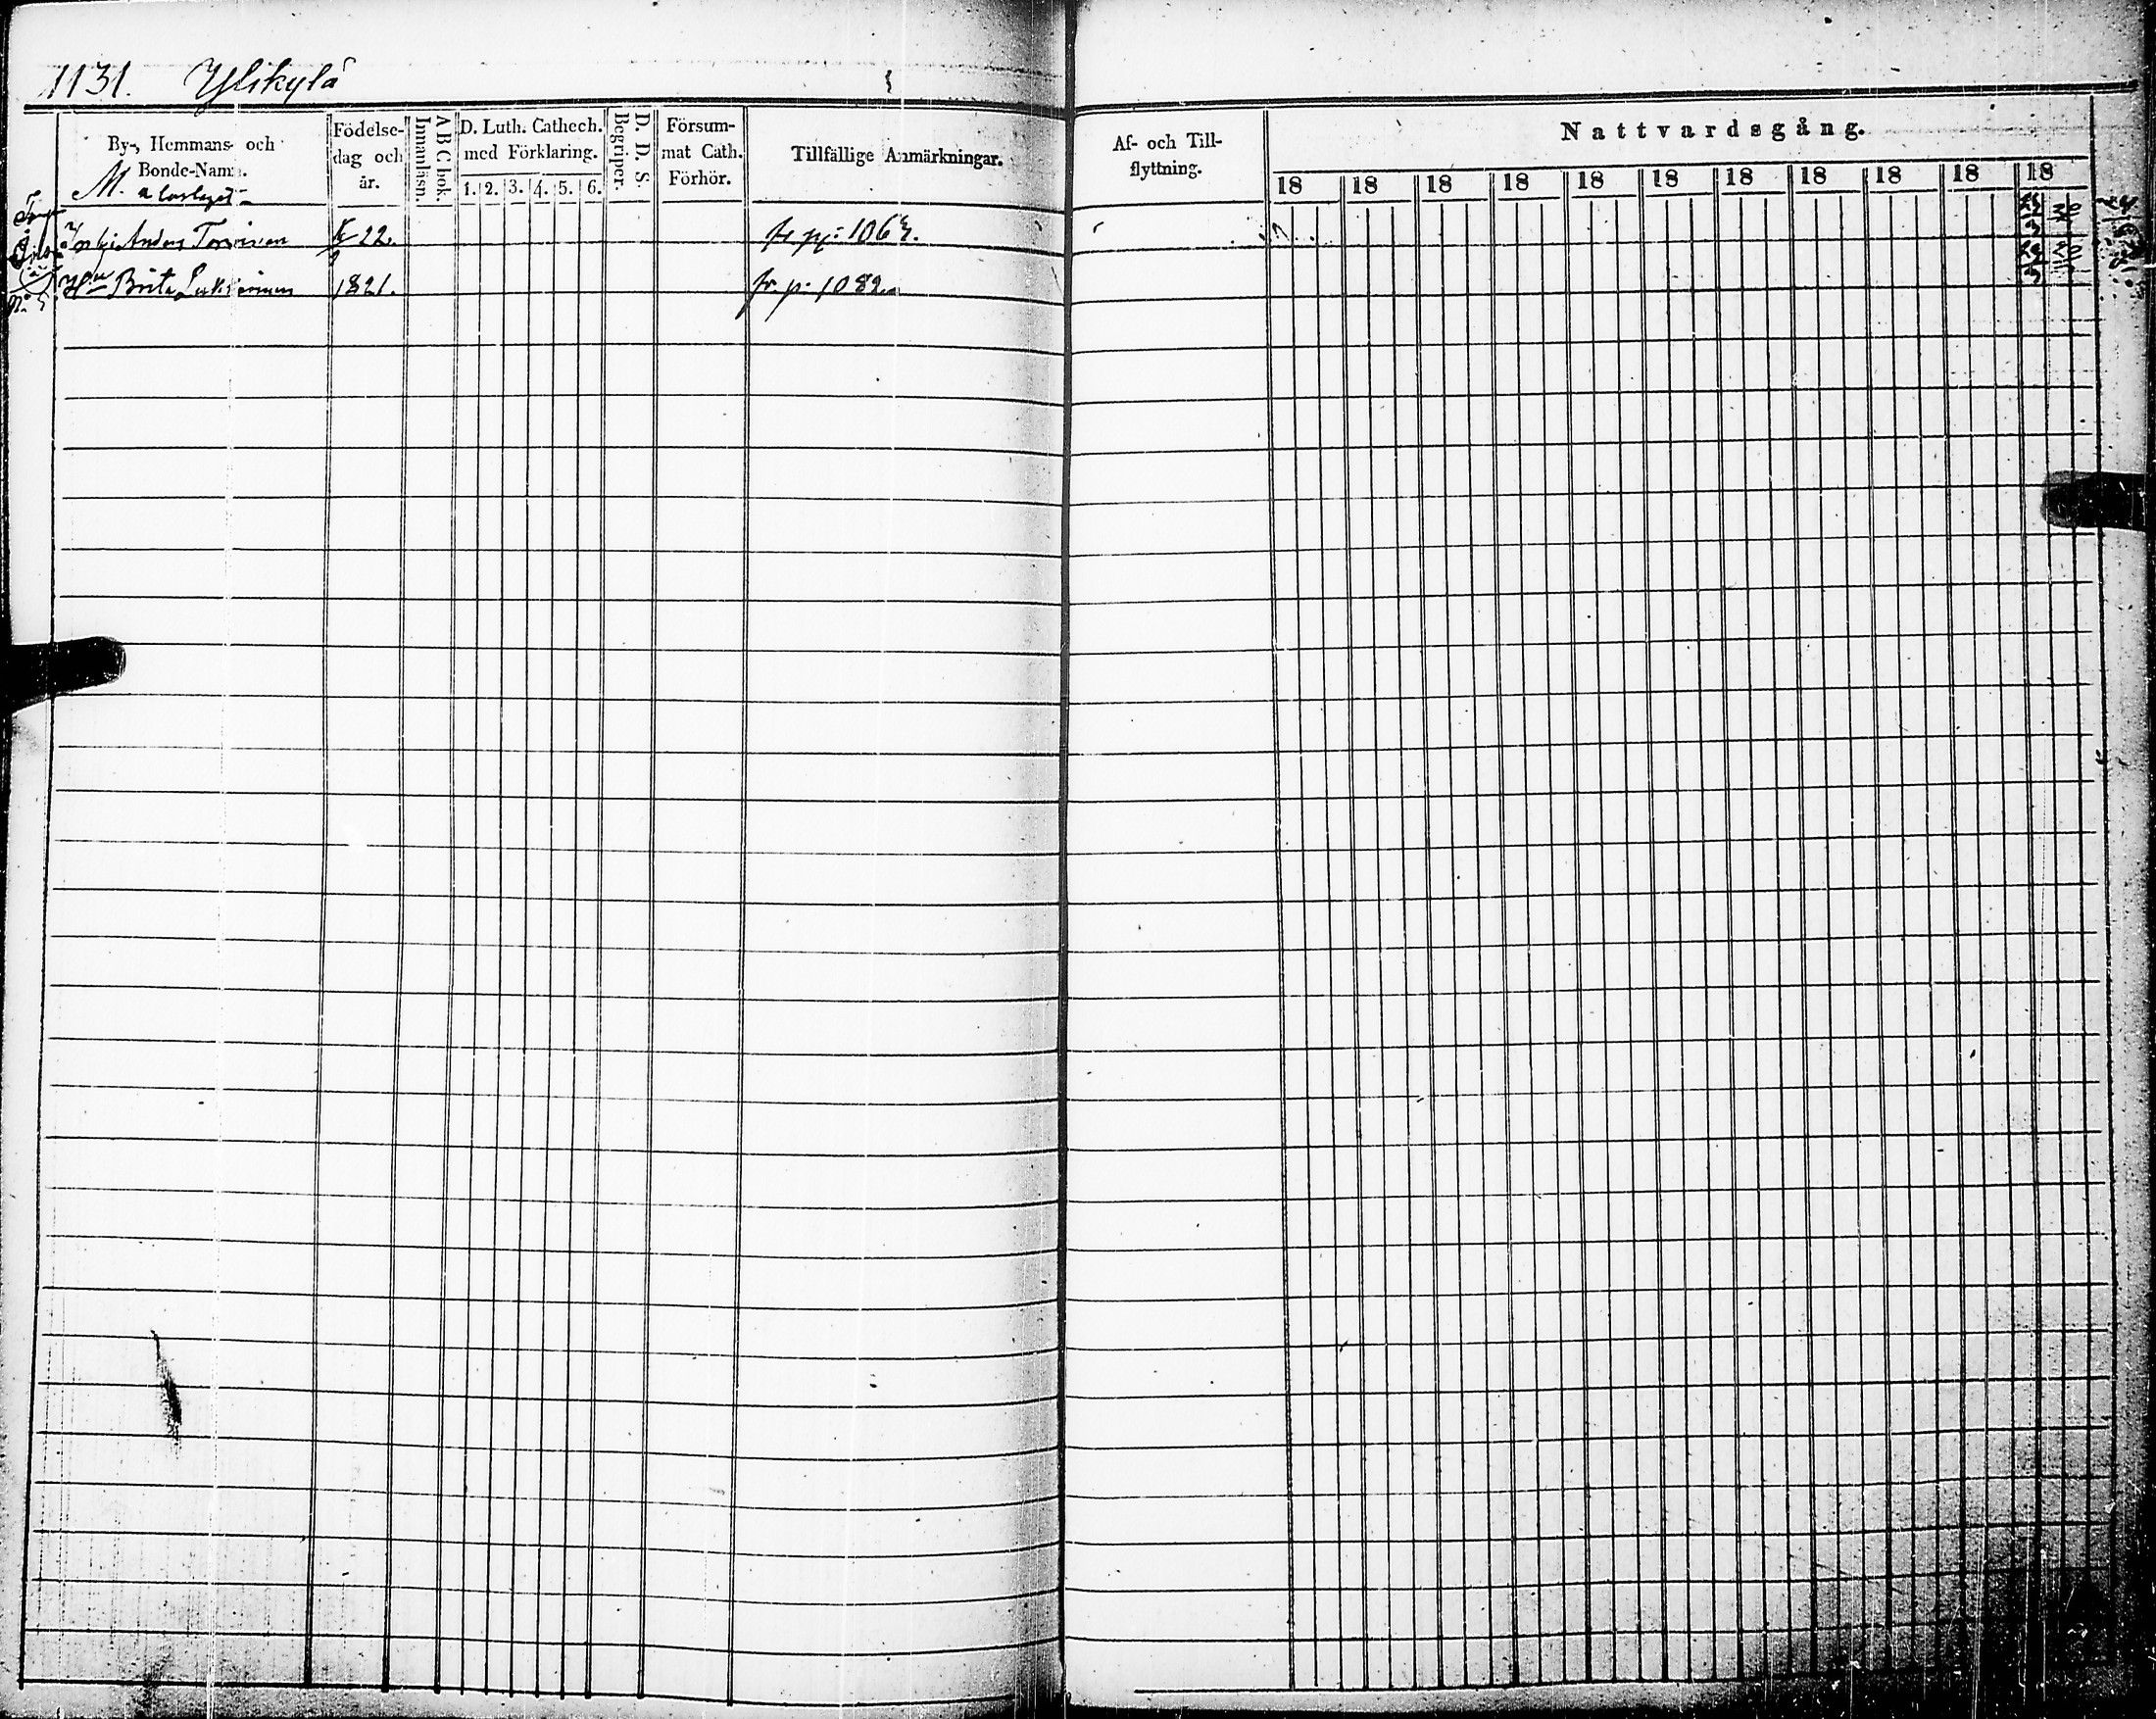 1131. Ylikylä
By-, Hemmans- och
Bonde-Namn.
Födelse-
dag och
år.
A B C bok.
Innanläsn.
D. Luth. Cathech.
med Förklaring.
1. 2. 3. 4. 5. 6.
D. D. S.
Begriper.
Försum-
mat Cath.
Förhör.
Tillfällige Anmärkningar.
Af- och Till-
flyttning.
Nattvardsgång.
18 18 18 18 18 18 18 18 18 18 18
M.
Anders 22.
Hu Brita 1821. fr. p: 1082.